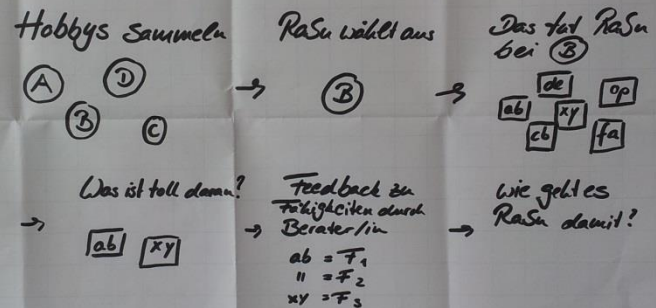 Hobbys sammeln
A
D
B
C
→
RaSu wählt aus
B
→
Das tut RaSu
bei B
de
op
ab
xy
cb
fa
→
Was ist toll daran?
ab
xy
→
Feedback zu
Fähigkeiten durch
Berater/in
ab = F1
" = F2
xy = F3
→
wie geht es
RaSu damit?